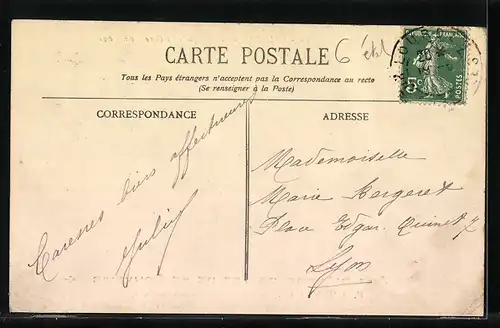 CARTE POSTALE
6 
Tous les Pays étrangers n'acceptent pas la Correspondance au recto
(Se renseigner à la Poste)
CORRESPONDANCE
ADRESSE
Caresses bien affectueuses
Mademoiselle
Marie Bergeret
Place Edgar Quinet 7
Lyon
5c
POSTES